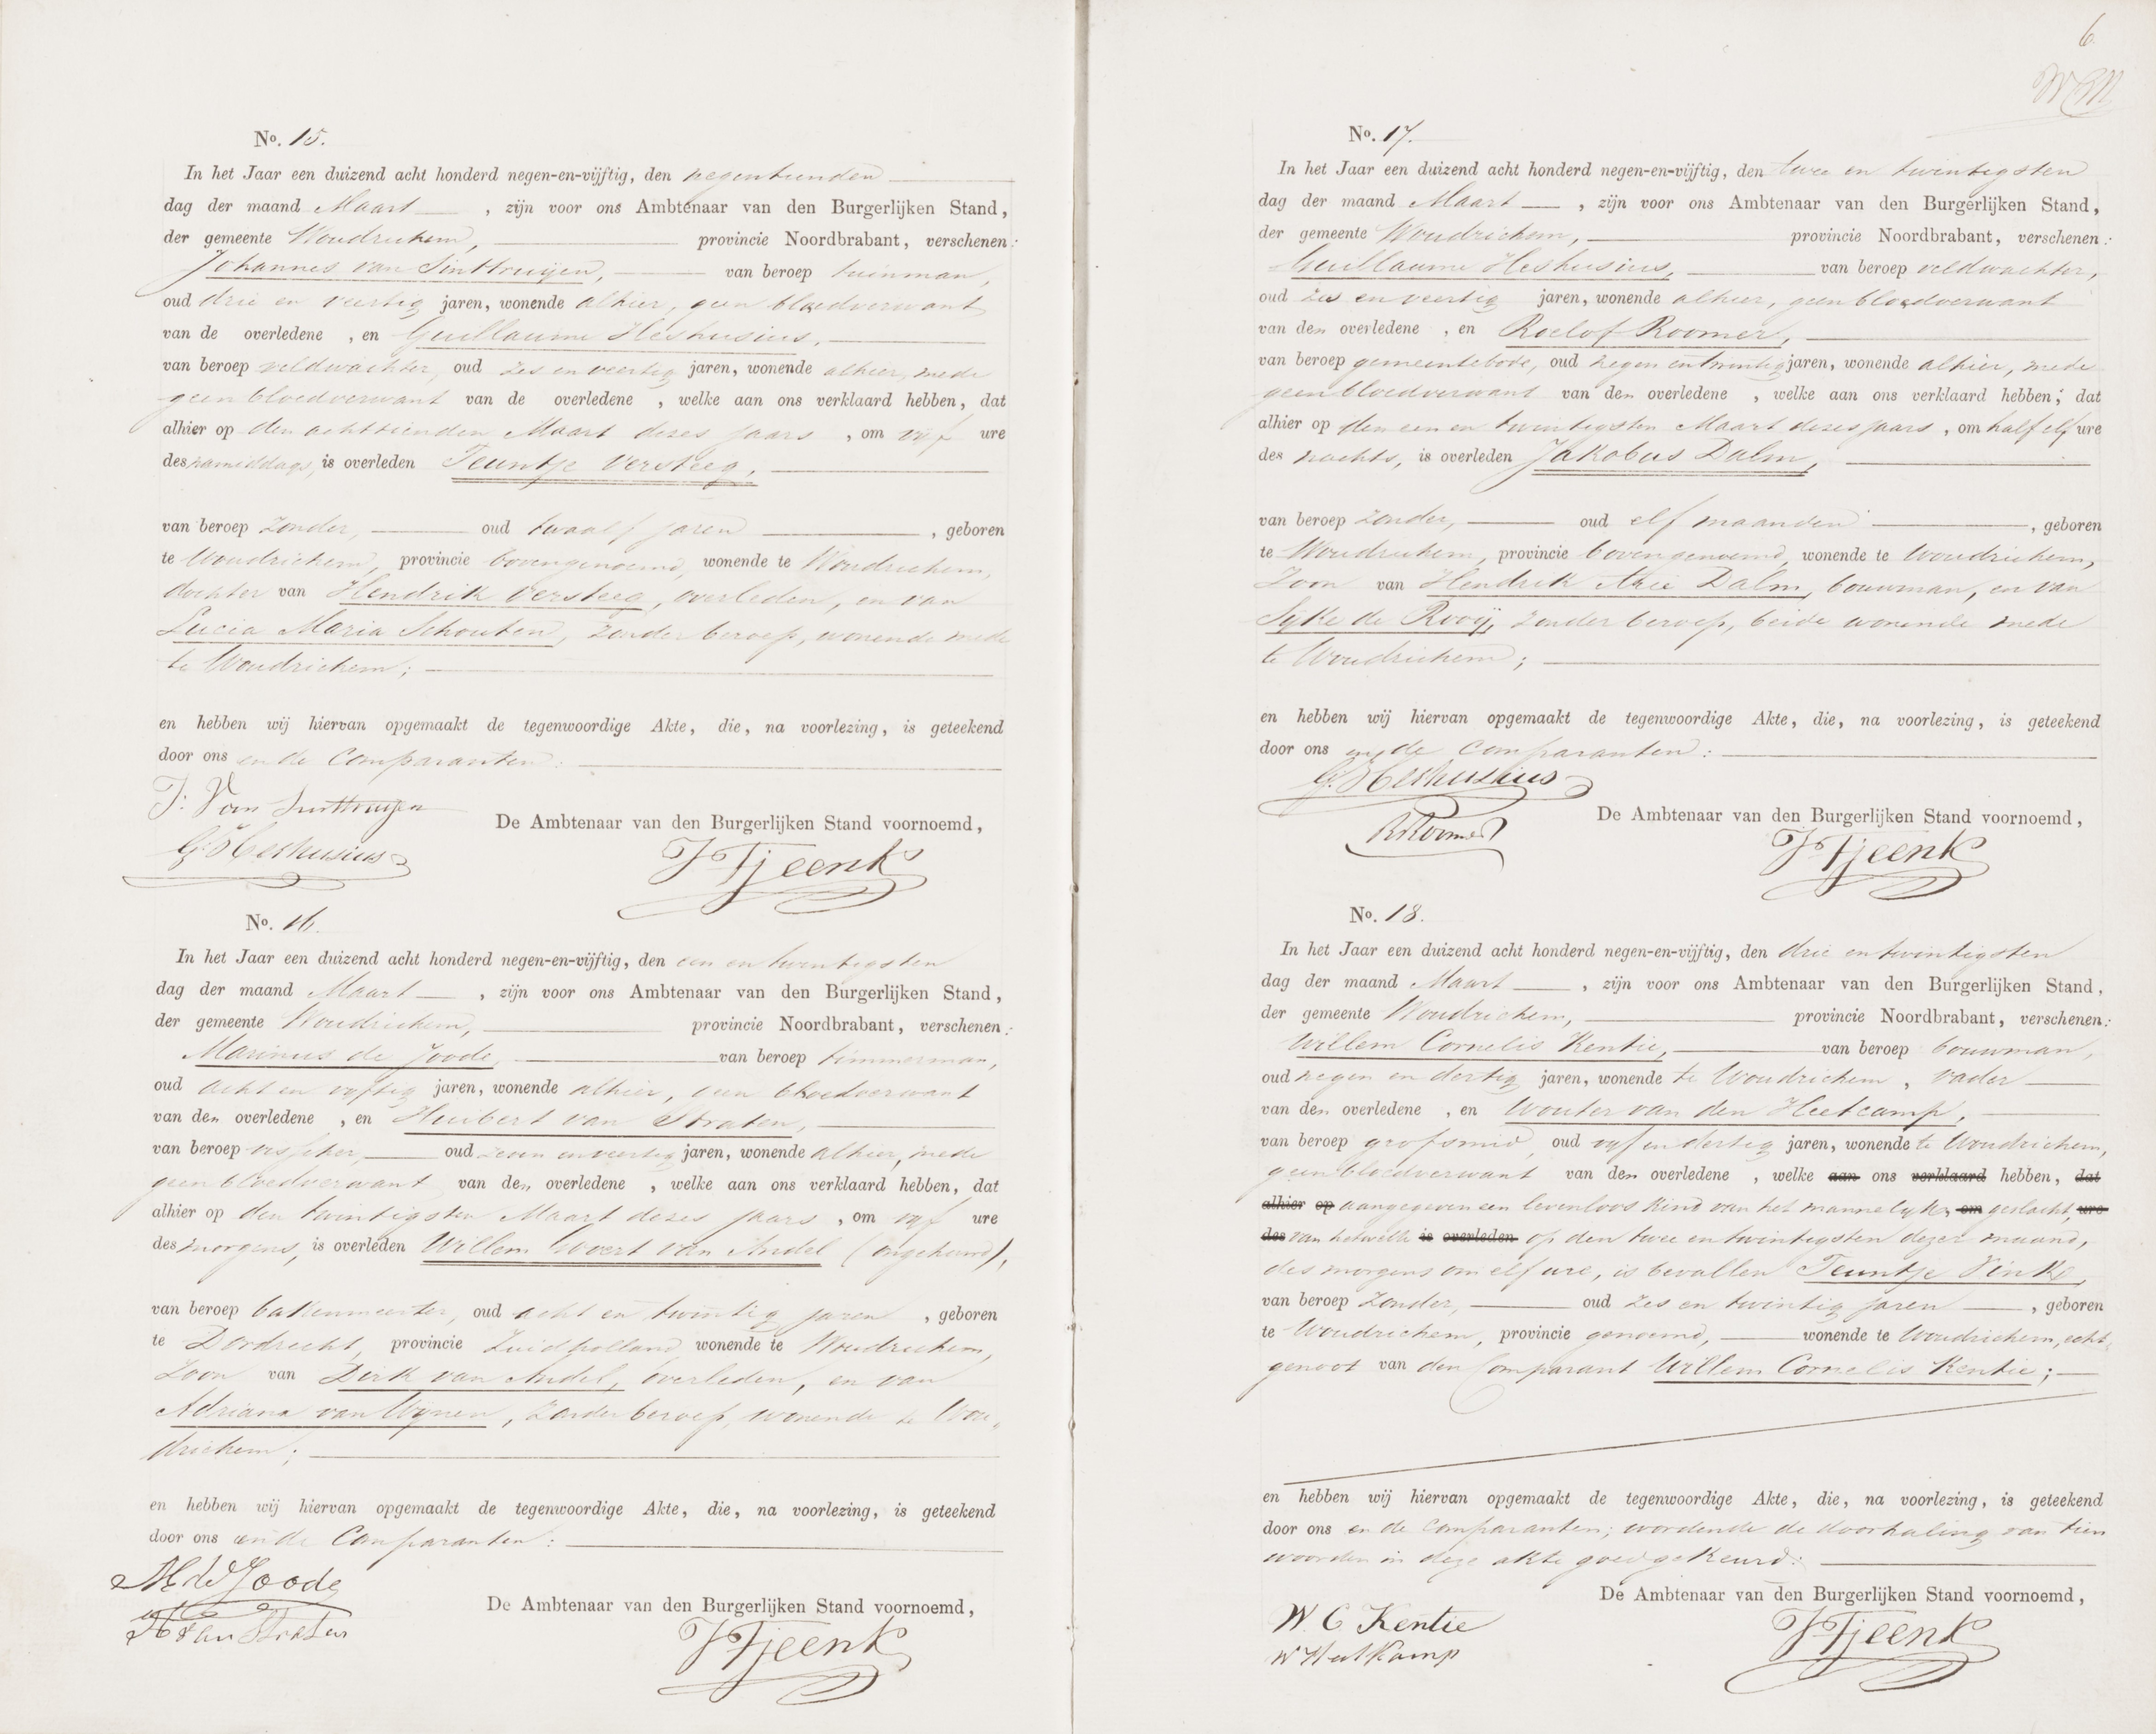 No. 15.
In het Jaar een duizend acht honderd negen-en-vijftig, den negentienden
dag der maand Maart, zijn voor ons Ambtenaar van den Burgerlijken Stand,
der gemeente Woudrichem, provincie Noordbrabant, verschenen:
Johannes van Sinttruijen, van beroep tuinman,
oud drie en veertig jaren, wonende alhier, geen bloedverwant
van de overledene, en Guillaume Heshusius,
van beroep veldwachter, oud zes en veertig jaren, wonende alhier, mede
geen bloedverwant van de overledene, welke aan ons verklaard hebben, dat
alhier op den achttienden Maart dezes jaars, om vyf ure
des namiddags, is overleden Teuntje Versteeg,
van beroep zonder, oud twaalf jaren, geboren
te Woudrichem, provincie bovengenoemd, wonende te Woudrichem,
dochter van Hendrik Versteeg, overleden, en van
Lucia Maria Schouten, zonder beroep, wonende mede
te Woudrichem;
en hebben wij hiervan opgemaakt de tegenwoordige Akte, die, na voorlezing, is geteekend
door ons en de Comparanten:
J. Van Sinttruijen
De Ambtenaar van den Burgerlijken Stand voornoemd,
G. Heshusius
Tjeenk
No. 16.
In het Jaar een duizend acht honderd negen-en-vijftig, den een en twintigsten
dag der maand Maart, zijn voor ons Ambtenaar van den Burgerlijken Stand,
der gemeente Woudrichem, provincie Noordbrabant, verschenen:
Marinus de Joode, van beroep timmerman,
oud acht en vyftig jaren, wonende alhier, geen bloedverwant
van den overledene, en Huibert van Straten,
van beroep visscher, oud zeven en veertig jaren, wonende alhier, mede
geen bloedverwant van den overledene, welke aan ons verklaard hebben, dat
alhier op den twintigsten Maart dezes jaars, om vyf ure
des morgens, is overleden Willem Govert van Andel (ongehuwd),
van beroep bakenmeester, oud acht en twintig jaren, geboren
te Dordrecht, provincie Zuidholland, wonende te Woudrichem,
Zoon van Dirk van Andel, overleden, en van
Adriana van Wynen, zonder beroep, wonende te Wou-
drichem;
en hebben wij hiervan opgemaakt de tegenwoordige Akte, die, na voorlezing, is geteekend
door ons en de Comparanten:
M de Joode
De Ambtenaar van den Burgerlijken Stand voornoemd,
H van Straten
Tjeenk
6
No. 17.
In het Jaar een duizend acht honderd negen-en-vijftig, den twee en twintigsten
dag der maand Maart, zijn voor ons Ambtenaar van den Burgerlijken Stand,
der gemeente Woudrichem, provincie Noordbrabant, verschenen:
Guillaume Heshusius, van beroep veldwachter,
oud zes en veertig jaren, wonende alhier, geen bloedverwant
van den overledene, en Roelof Roomer,
van beroep gemeentebode, oud negen en twintig jaren, wonende alhier, mede
geen bloedverwant van den overledene, welke aan ons verklaard hebben, dat
alhier op den een en twintigsten Maart dezes jaars, om half elf ure
des nachts, is overleden Jakobus Dalm,
van beroep zonder, oud elf maanden, geboren
te Woudrichem, provincie bovengenoemd, wonende te Woudrichem,
Zoon van Hendrik Arie Dalm, bouwman, en van
Syke de Rooy, zonder beroep, beide wonende mede
te Woudrichem;
en hebben wij hiervan opgemaakt de tegenwoordige Akte, die, na voorlezing, is geteekend
door ons en de comparanten:
G. Heshusius
De Ambtenaar van den Burgerlijken Stand voornoemd,
R Roomer
Tjeenk
No. 18.
In het Jaar een duizend acht honderd negen-en-vijftig, den drie en twintigsten
dag der maand Maart, zijn voor ons Ambtenaar van den Burgerlijken Stand,
der gemeente Woudrichem, provincie Noordbrabant, verschenen:
Willem Cornelis Kentie, van beroep bouwman,
oud negen en dertig jaren, wonende te Woudrichem, vader
van den overledene, en Wouter van den Heetcamp,
van beroep grofsmid, oud vyf en dertig jaren, wonende te Woudrichem,
geen bloedverwant van den overledene, welke aan ons verklaard hebben, dat
alhier op aangegeven een levenloos kind van het mannelyke, om geslacht, ure
des van hetwelk is overleden op den twee en twintigsten dezer maand,
des morgens om elf ure, is bevallen Teuntje Vinke,
van beroep zonder, oud zes en twintig jaren, geboren
te Woudrichem, provincie genoemd, wonende te Woudrichem, echt-
genoot van den Comparant Willem Cornelis Kentie;
en hebben wij hiervan opgemaakt de tegenwoordige Akte, die, na voorlezing, is geteekend
door ons en de comparanten; wordende de doorhaling van tien
woorden in deze akte goedgekeurd:
De Ambtenaar van den Burgerlijken Stand voornoemd,
W. C. Kentie
W Heetkamp
Tjeenk